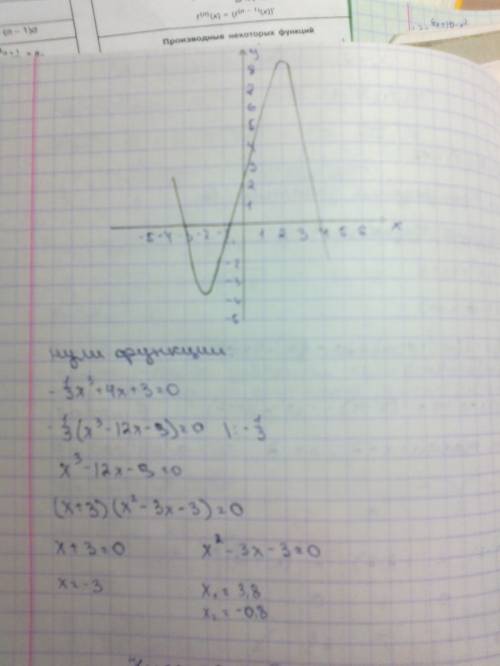 f⁽ⁿ⁾(x) = (f⁽ⁿ⁻¹⁾(x))'
Производные некоторых функций
y
8
7
6
5
4
3
2
1
-5 -4 -2 1 2 3 4 5 6 x
нули функции
-1/3x³+4x+3=0
-1/3(x³-12x-9)=0 |:-1/3
x³-12x-9=0
(x+3)(x²-3x-3)=0
x+3=0 x²-3x-3=0
x=-3 x₁=3,8
x₂=-0,8